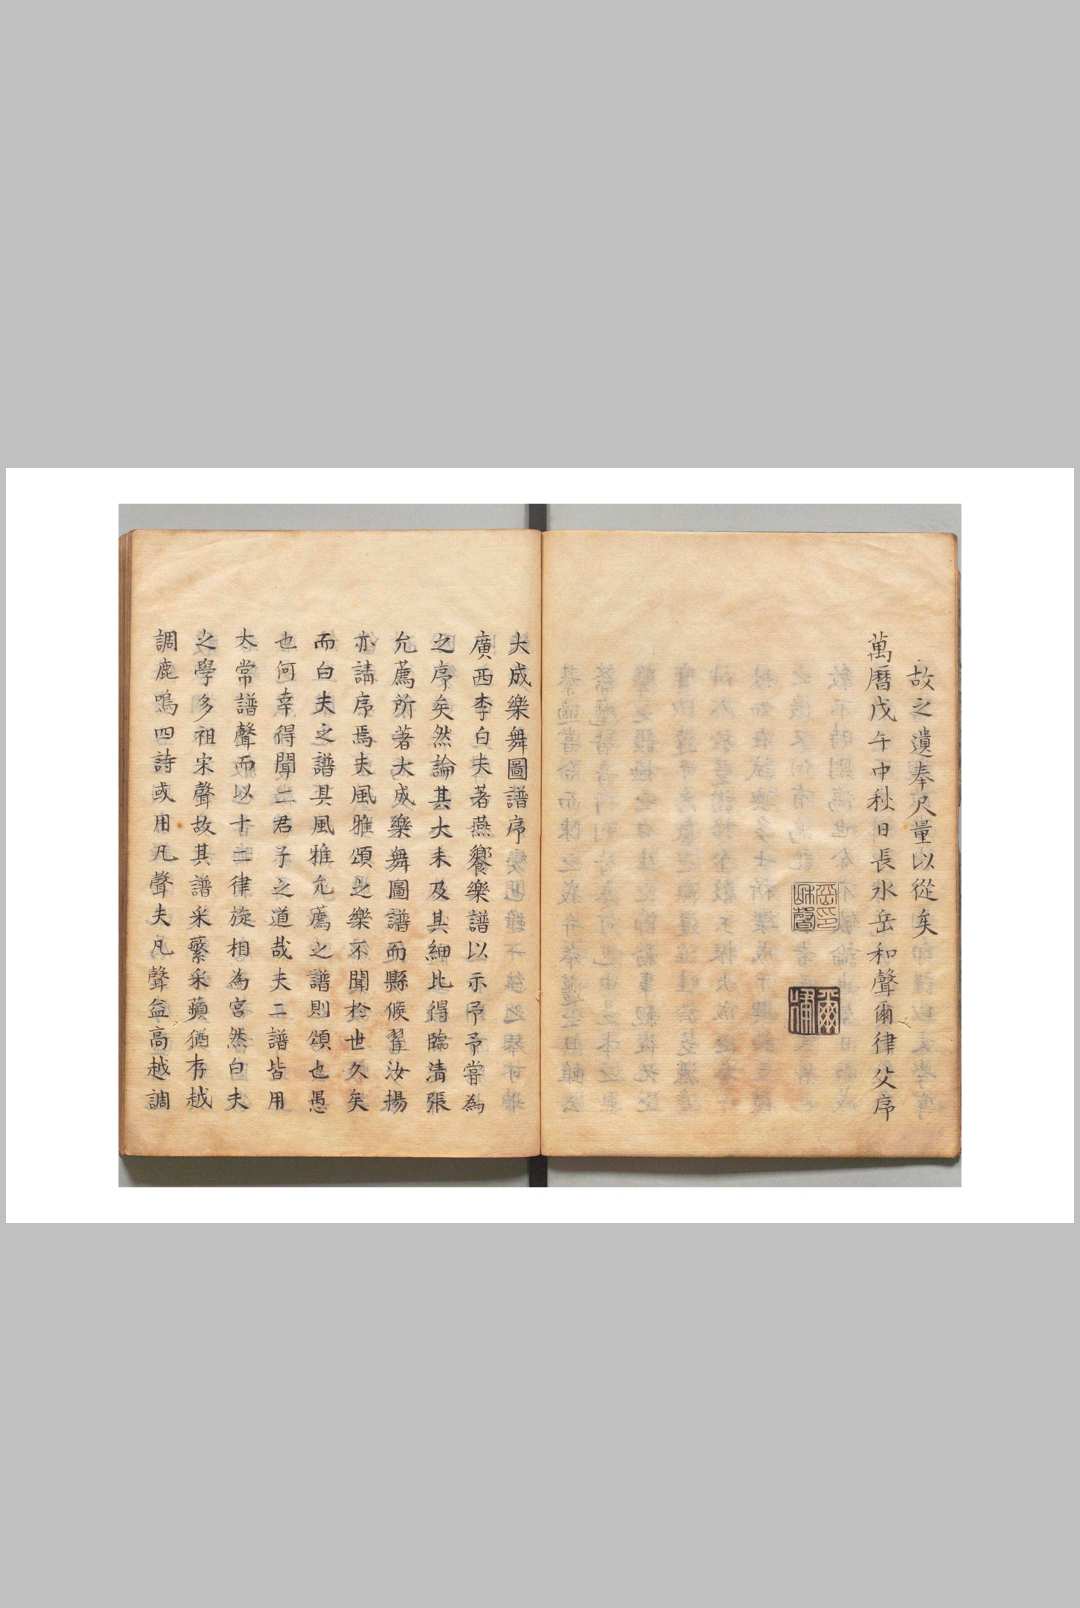 故之遺奉尺量以從矣
萬曆戊午中秋日長水岳和聲爾律父序
大成樂舞圖譜序
廣西李白夫著燕饗樂譜以示予予嘗為
之序矣然論其大未及其細比得臨清張
允薦所著大成樂舞圖譜而縣候翟汝揚
亦請序焉夫風雅頌之樂不聞於世久矣
而白夫之譜其風雅允薦之譜則頌也愚
也何幸得聞二君子之道哉夫二譜皆用
太常譜聲而以十二律旋相為宮然白夫
之學多祖宋聲故其譜采蘩采蘋猶存越
調鹿鳴四詩或用凡聲夫凡聲益高越調